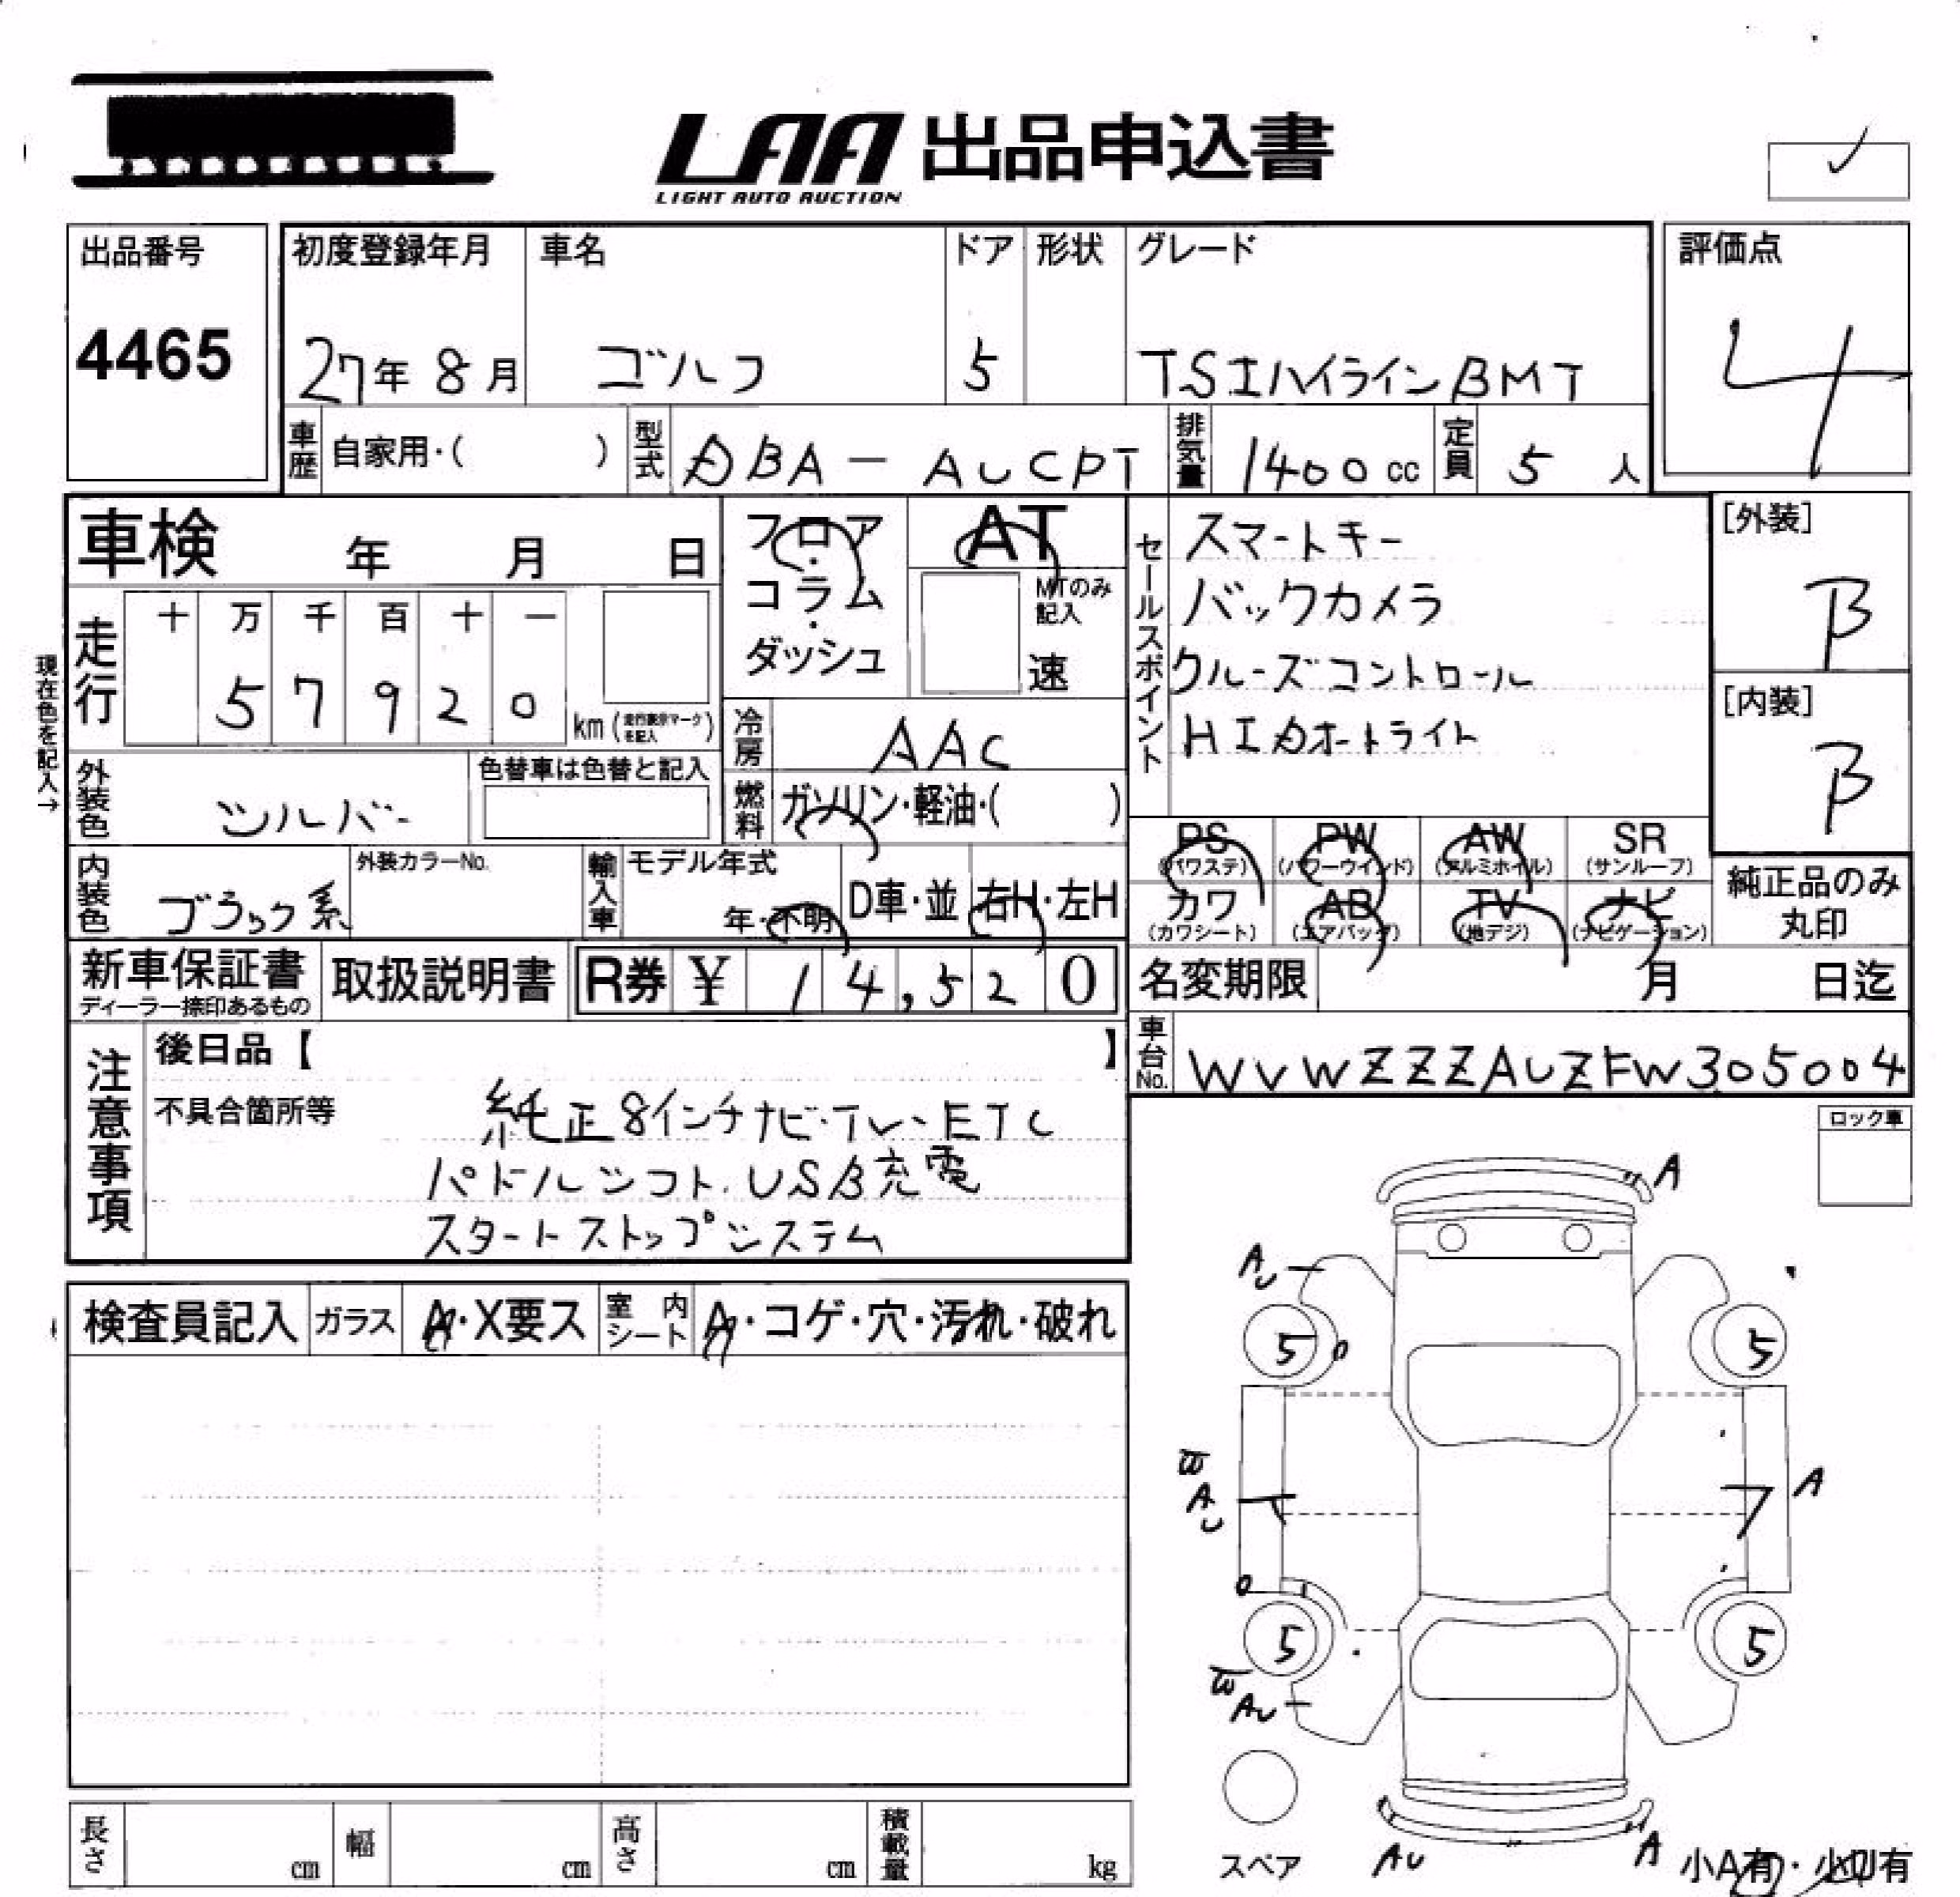 LAA 出品申込書
LIGHT AUTO AUCTION
出品番号
4465
初度登録年月
27年 8月
車名
ゴルフ
ドア
5
形状
グレード
TSIハイラインBMT
評価点
4
車歴 自家用・( )
型式 DBA-AUCPT
排気量 1400cc
定員 5人
車検 年 月 日
走行
十 万 千 百 十 一
5 7 9 2 0
km (走行表示マークを記入)
現在色を記入→
外装色 シルバー
色替車は色替と記入
内装色 ブラック系
外装カラーNo.
フロア・コラム・ダッシュ
AT
MTのみ記入
速
冷房 AAC
燃料 ガソリン・軽油・( )
輸入車
モデル年式
年・不明
D車・並
右H・左H
セールスポイント
スマートキー
バックカメラ
クルーズコントロール
HIDオートライト
[外装]
B
[内装]
B
PS (パワステ)
PW (パワーウインド)
AW (アルミホイル)
SR (サンルーフ)
カワ (カワシート)
AB (エアバッグ)
TV (地デジ)
ナビ (ナビゲーション)
純正品のみ丸印
新車保証書
ディーラー捺印あるもの
取扱説明書
R券 ¥ 14,520
名変期限 月 日迄
車台No. WVWZZZAUZFW305004
注意事項
後日品【 】
不具合箇所等
純正8インチナビ・TV・ETC
パドルシフト.USB充電
スタートストップシステム
検査員記入
ガラス A・X要ス
室内シート A・コゲ・穴・汚れ・破れ
ロック車
A
AU
5
5
W
AU
A
5
5
W
AU
スペア
AU
A
小A有・小U有
長さ cm
幅 cm
高さ cm
積載量 kg